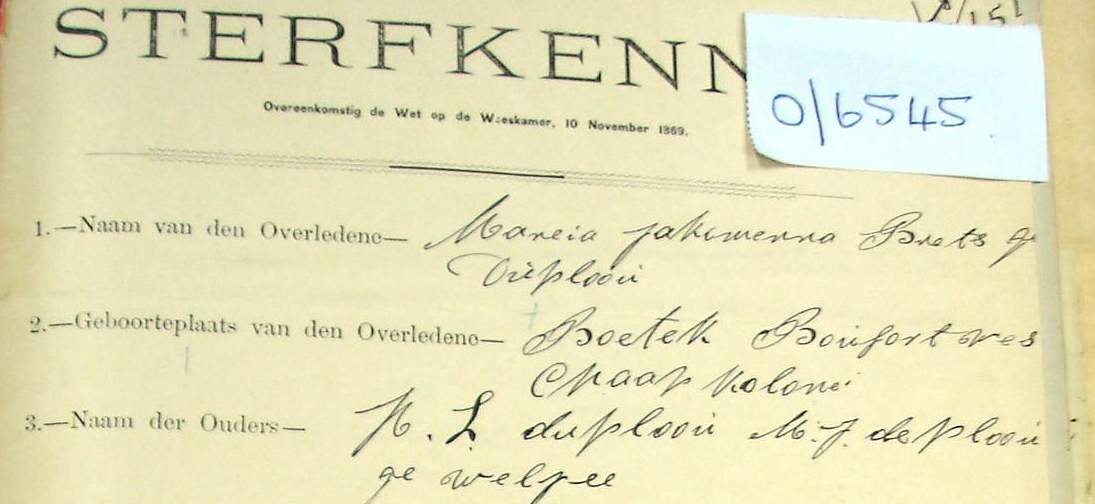 STERFKENN
O/6545
Overeenkomstig de Wet op de Weeskamer, 10 November 1869.
1.—Naam van den Overledene— Mareia jakomenna Brets ge
Dūeplooii
2.—Geboorteplaats van den Overledene— Boetek Boūfort wes
Chaap kolonei
3.—Naam der Ouders— H. L duplooii M. J. deplooii
ge welfee